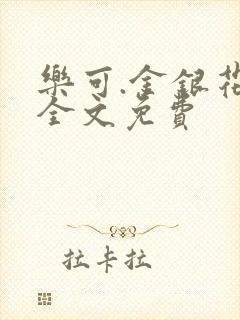 樂可.金銀花
全文免費
拉卡拉